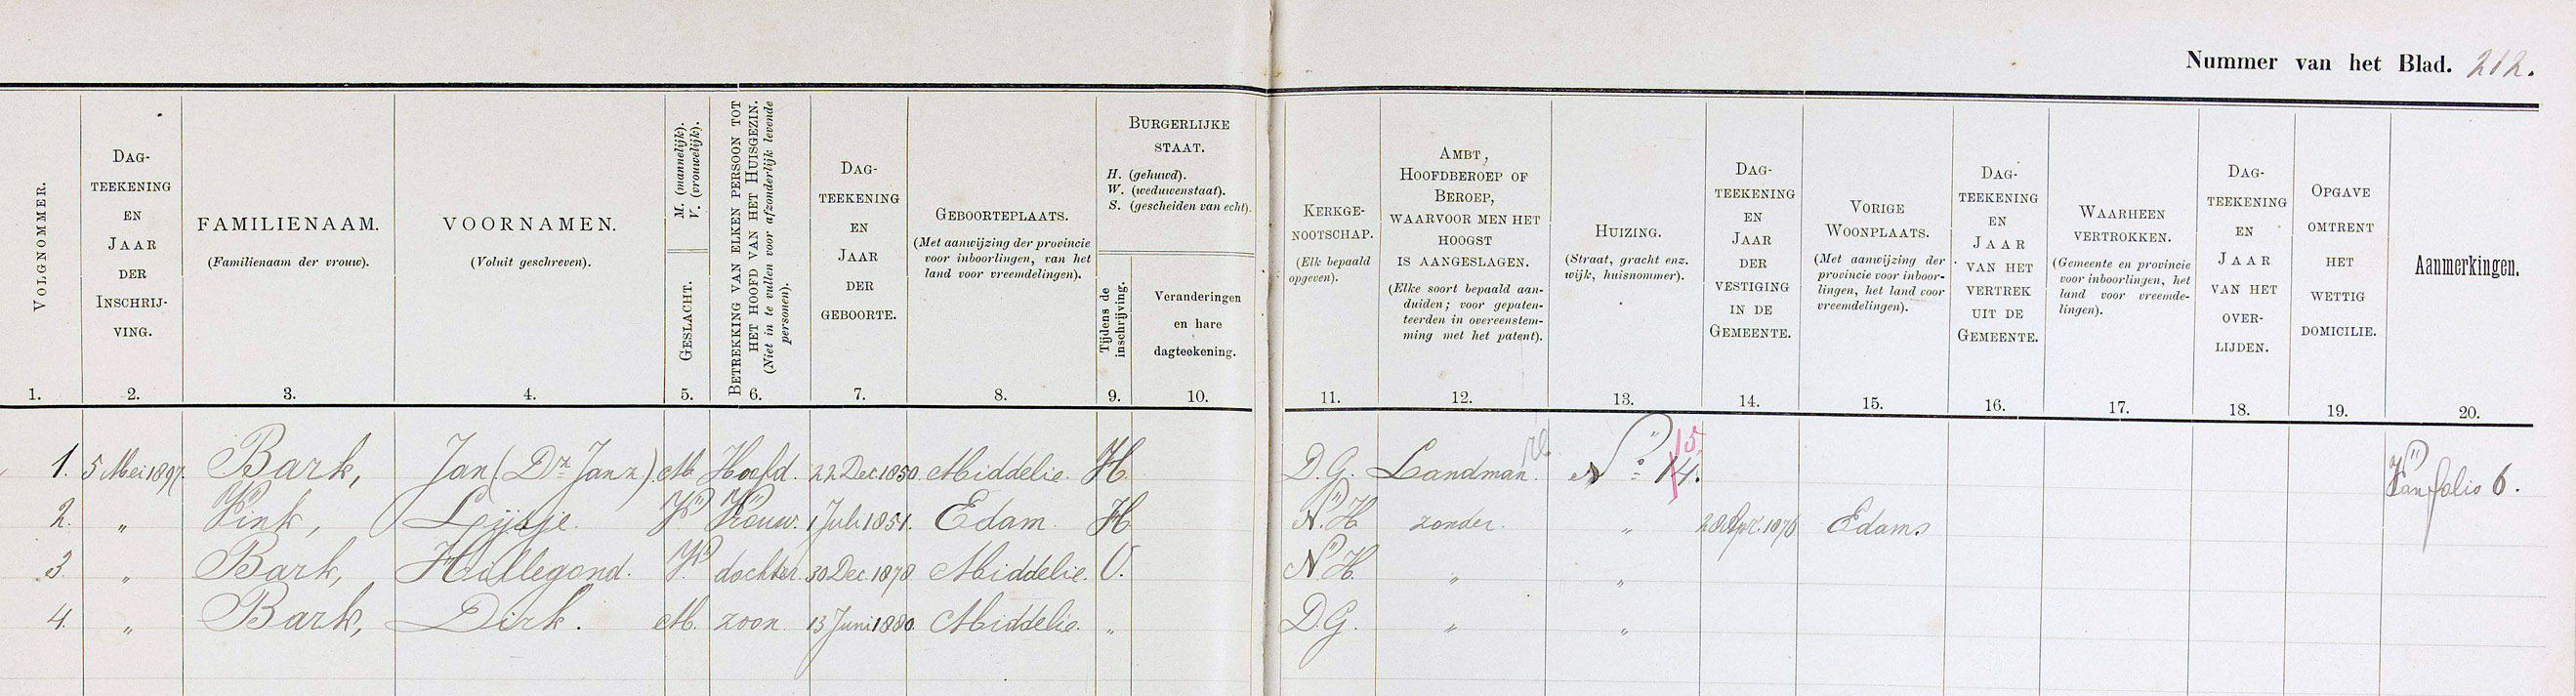 Nummer van het Blad. 212.
VOLGNOMMER.
1.
DAG-
TEEKENING
EN
JAAR
DER
INSCHRIJ-
VING.
2.
FAMILIENAAM.
(Familienaam der vrouw).
3.
VOORNAMEN.
(Voluit geschreven).
4.
M. (mannelijk).
V. (vrouwelijk).
GESLACHT.
5.
BETREKKING VAN ELKEN PERSOON TOT
HET HOOFD VAN HET HUISGEZIN.
(Niet in te vullen voor afzonderlijk levende
personen).
6.
DAG-
TEEKENING
EN
JAAR
DER
GEBOORTE.
7.
GEBOORTEPLAATS.
(Met aanwijzing der provincie
voor inboorlingen, van het
land voor vreemdelingen).
8.
BURGERLIJKE
STAAT.
H. (gehuwd).
W. (weduwenstaat).
S. (gescheiden van echt).
Tijdens de
inschrijving.
9.
Veranderingen
en hare
dagteekening.
10.
KERKGE-
NOOTSCHAP.
(Elk bepaald
opgeven).
11.
AMBT,
HOOFDBEROEP OF
BEROEP,
WAARVOOR MEN HET
HOOGST
IS AANGESLAGEN.
(Elke soort bepaald aan-
duiden; voor gepaten-
teerden in overeenstem-
ming met het patent).
12.
HUIZING.
(Straat, gracht enz.
wijk, huisnommer).
13.
DAG-
TEEKENING
EN
JAAR
DER
VESTIGING
IN DE
GEMEENTE.
14.
VORIGE
WOONPLAATS.
(Met aanwijzing der
provincie voor inboor-
lingen, het land voor
vreemdelingen).
15.
DAG-
TEEKENING
EN
JAAR
VAN HET
VERTREK
UIT DE
GEMEENTE.
16.
WAARHEEN
VERTROKKEN.
(Gemeente en provincie
voor inboorlingen, het
land voor vreemde-
lingen).
17.
DAG-
TEEKENING
EN
JAAR
VAN HET
OVER-
LIJDEN.
18.
OPGAVE
OMTRENT
HET
WETTIG
DOMICILIE.
19.
Aanmerkingen.
20.
1. 5 Mei 1897. Bark, Jan (Dz Janz). M. Hoofd. 22 Dec. 1850. Middelie. H. D.G. Landman. No 14. 15. Van folio 6.
2. " Pink, Lijsje. V. Vrouw. 1 Juli 1851. Edam. H N.H zonder. " 28 Apr. 1876 Edam.
3. " Bark, Hillegond. V. dochter. 30 Dec. 1878. Middelie. O. N.H. " "
4. " Bark, Dirk. M. zoon. 13 Juni 1880. Middelie. " D.G. " "